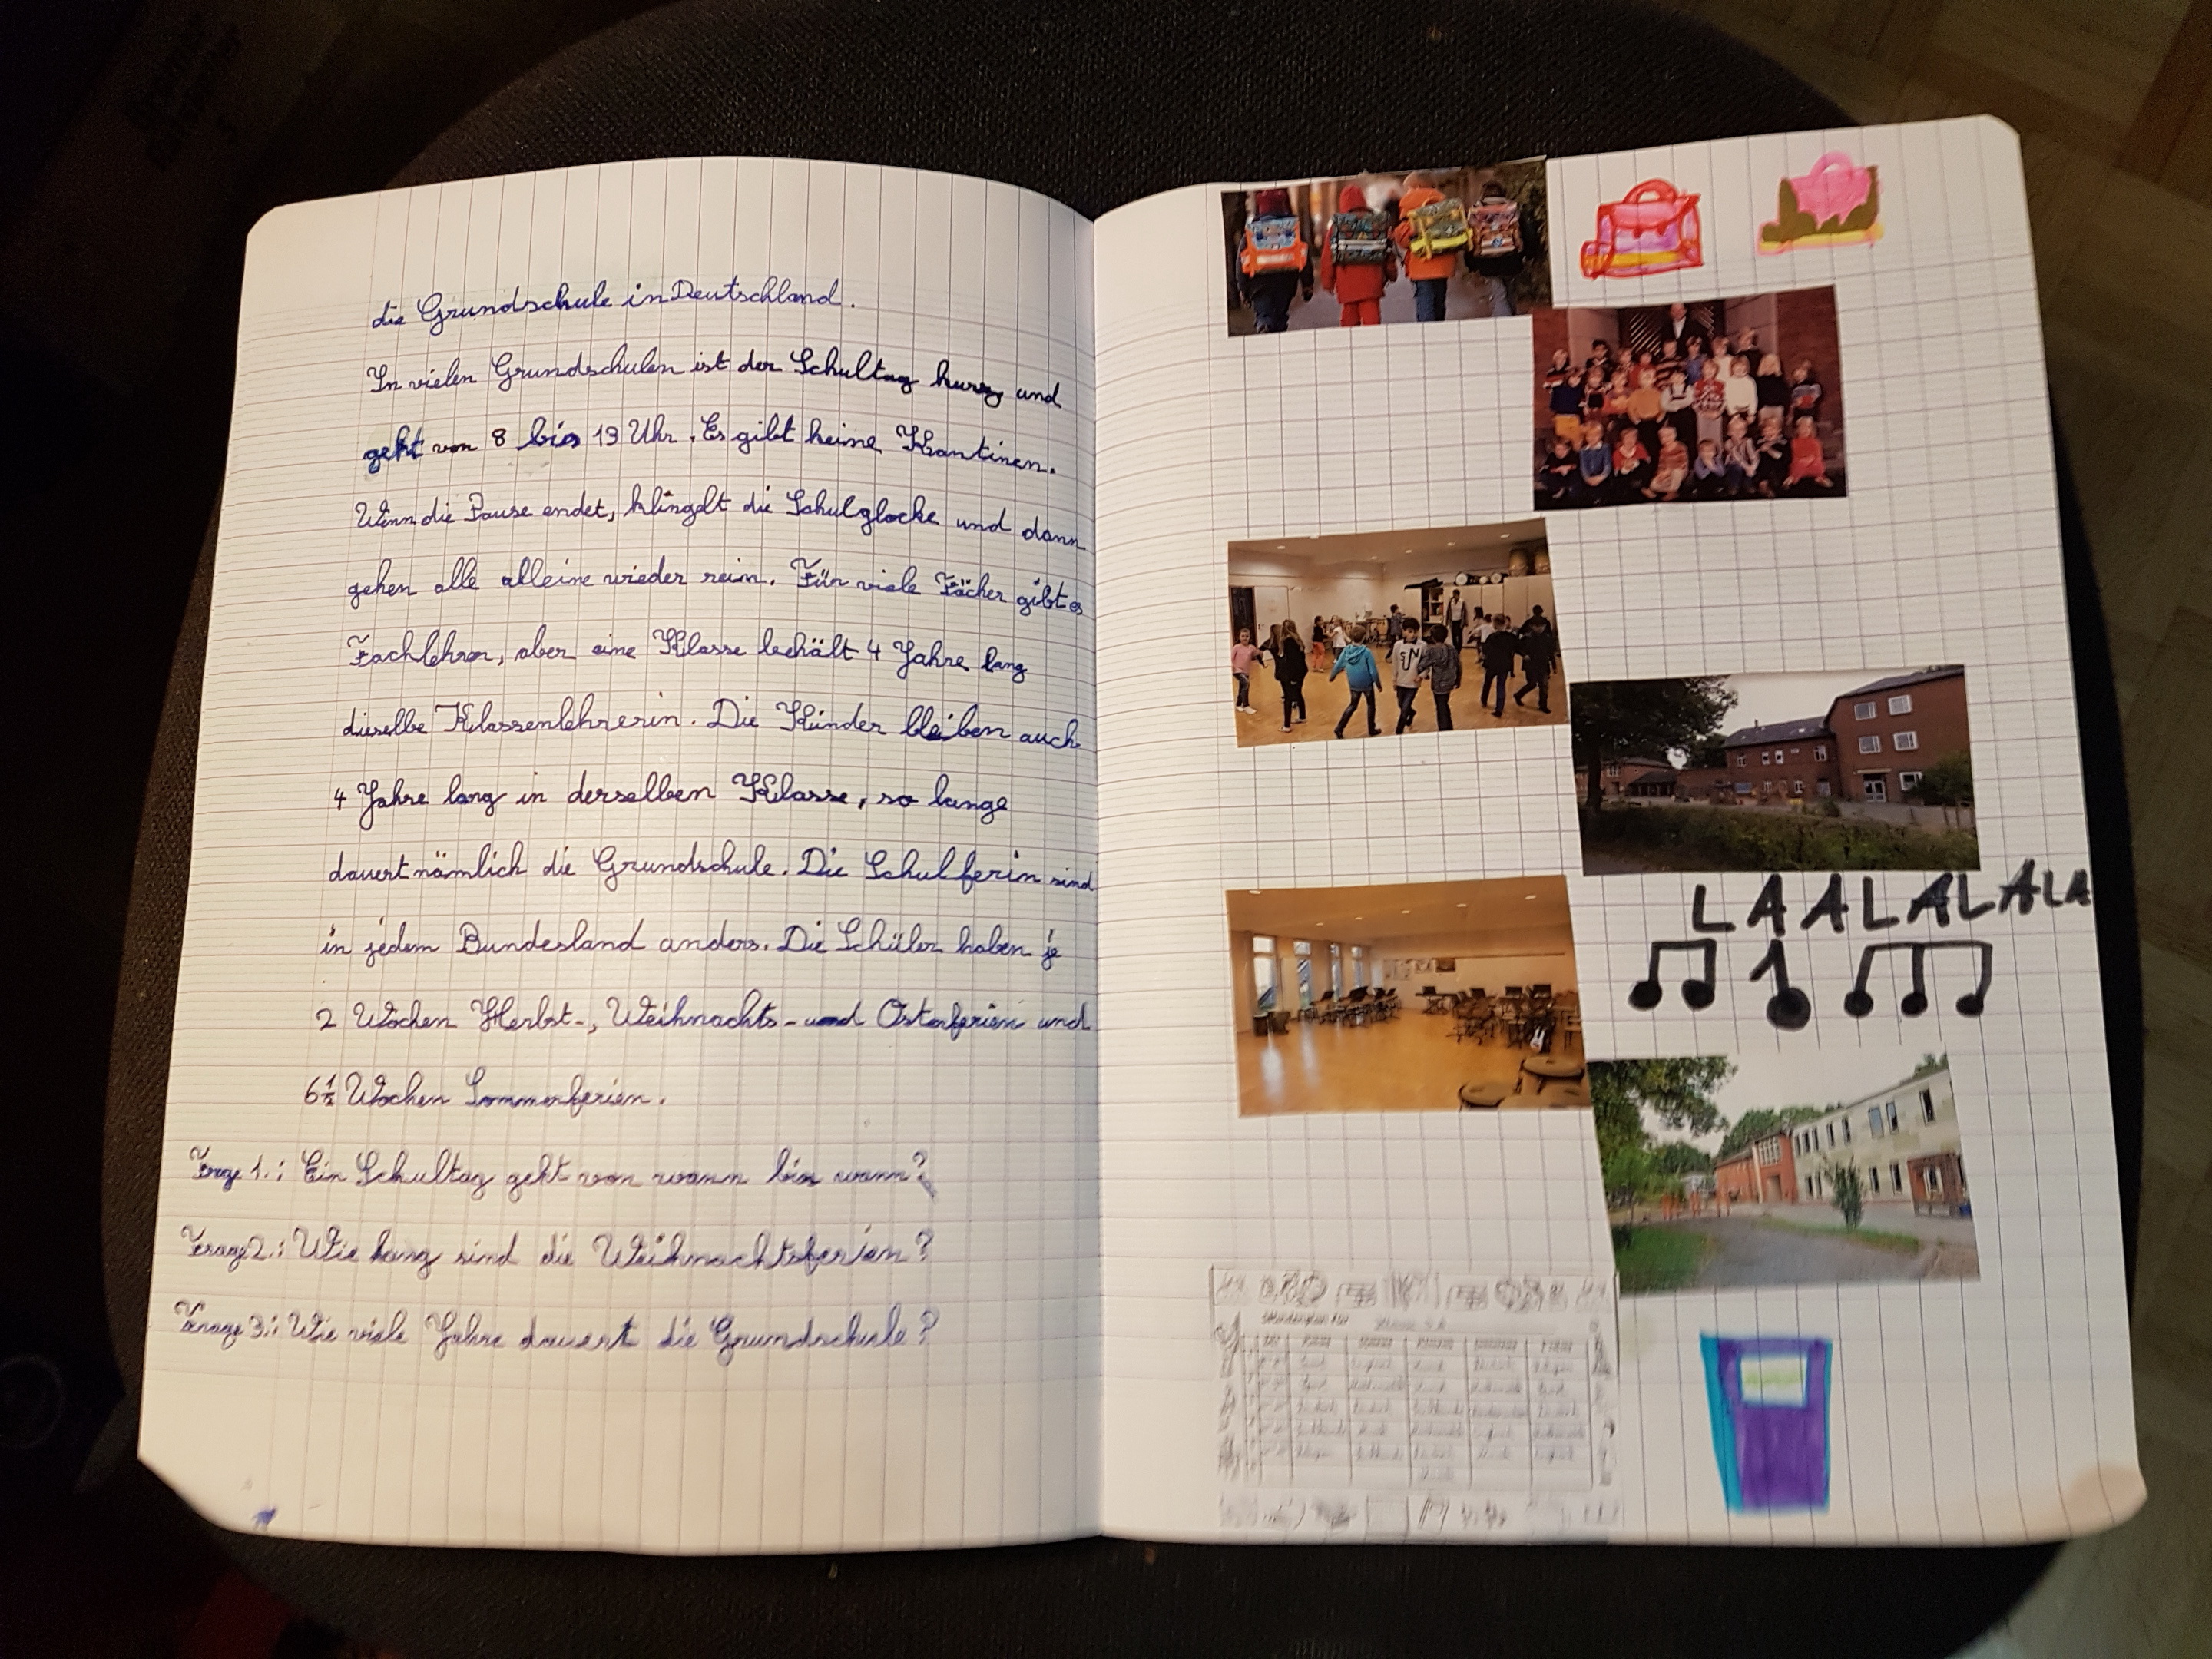 die Grundschule in Deutschland.
In vielen Grundschulen ist der Schultag kurz und
geht von 8 bis 13 Uhr. Es gibt keine Kantinen.
Wenn die Pause endet, klingelt die Schulglocke und dann
gehen alle alleine wieder rein. Für viele Fächer gibt es
Fachlehrer, aber eine Klasse behält 4 Jahre lang
dieselbe Klassenlehrerin. Die Kinder bleiben auch
4 Jahre lang in derselben Klasse, so lange
dauert nämlich die Grundschule. Die Schulferin sind
in jedem Bundesland anders. Die Schüler haben je
2 Wochen Herbst-, Weihnachts- und Osterferien und
6 1/2 Wochen Sommerferien.
Frage 1.: Ein Schultag geht von wann bis wann?
Frage 2.: Wie lang sind die Weihnachtsferien?
Frage 3.: Wie viele Jahre dauert die Grundschule?
LAALALALA
Stundenplan für